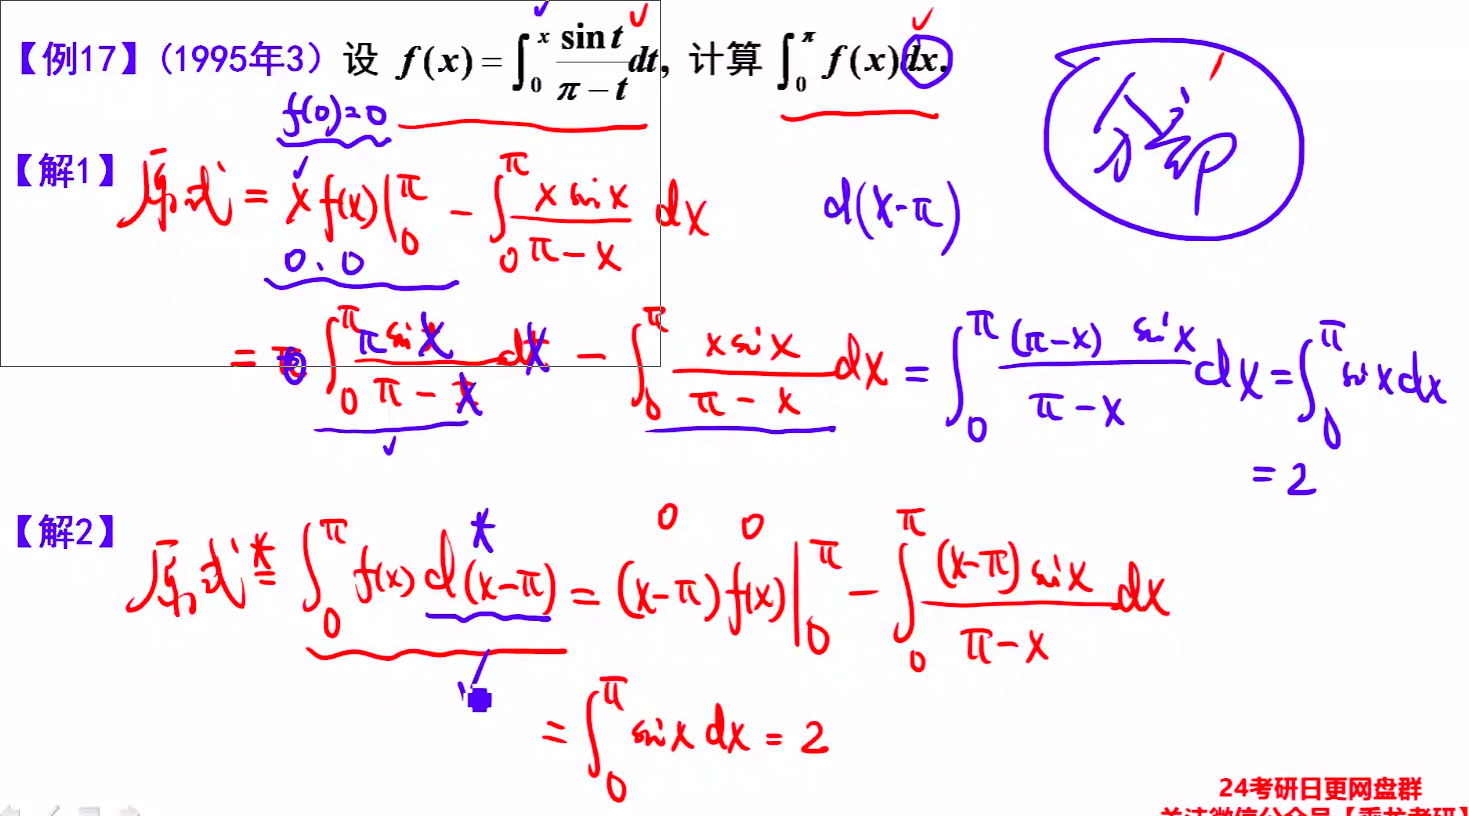 【例17】(1995年3) 设 f(x) = ∫_0^x sin t/(π − t) dt, 计算 ∫_0^π f(x)dx.
f(0)=0
分部
【解1】 原式 = x f(x)|_0^π − ∫_0^π x sin x/(π − x) dx
d(x-π)
0、0
= ∫_0^π π sin x/(π − x) dx − ∫_0^π x sin x/(π − x) dx = ∫_0^π (π-x) sin x/(π-x) dx = ∫_0^π sin x dx
= 2
【解2】 原式 = ∫_0^π f(x) d(x-π) = (x-π) f(x)|_0^π − ∫_0^π (x-π) sin x/(π-x) dx
0 0
= ∫_0^π sin x dx = 2
24考研日更网盘群